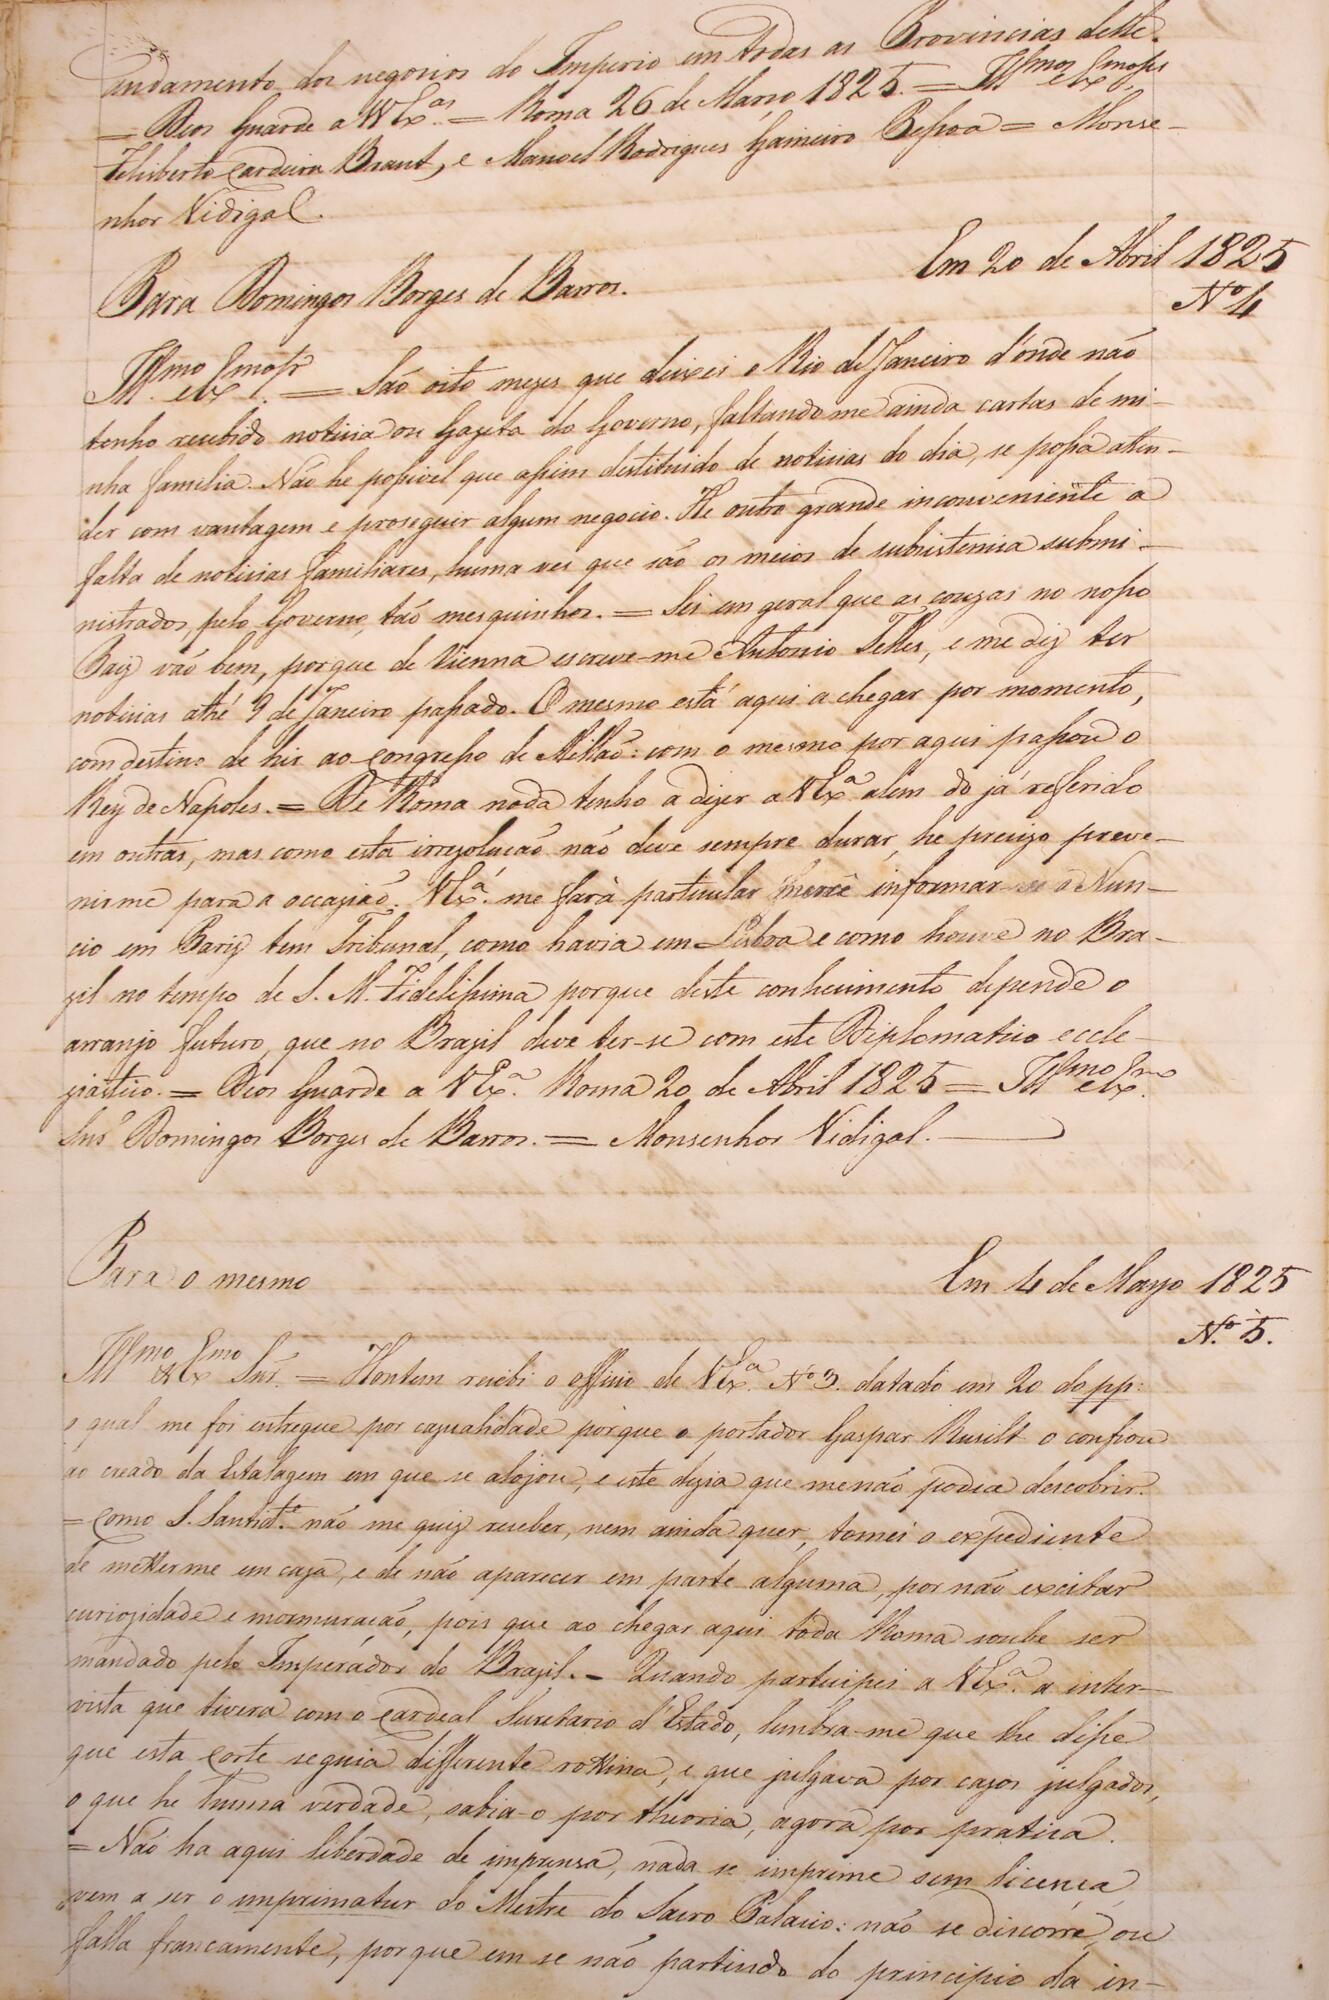 andamento dos negocios do Imperio em todas as Provincias delle.
= Deos Guarde a VV Ex.as = Roma 26 de Março 1825. = Ill.mos e Ex.mos Srs
Feliberto Cardeira Brant, e Manoel Rodrigues Gameiro Pessoa = Monse-
nhor Vidigal.
Em 20 de Abril 1825
Para Domingos Borges de Barros.
Nº 4
Ill.mo e Ex.mo Sr. = São oito mezes que deixei o Rio de Janeiro d'onde não
tenho recebido noticia ou Gazeta do Governo, faltando me ainda cartas de mi-
nha familia. Não he possivel que assim destituido de noticias do dia, se possa aten-
der com vantagem e proseguir algum negocio. He outro grande inconveniente a
falta de noticias familiares, huma ves que são os meios de subsistencia submi-
nistrados, pelo Governo, tão mesquinhos. = Sei em geral que as couzas no nosso
Paiz vão bem, porque de Vienna escreve-me Antonio Telles, e me diz ter
noticias athé 9 de Janeiro passado. O mesmo está aqui a chegar por momento,
com destino de hir ao Congresso de Millão: com o mesmo por aqui passou o
Rey de Napoles. = De Roma nada tenho a dizer a V Ex.a além do já referido
em outras, mas como esta irrezolução não deve sempre durar, he precizo preve-
nirme para a occazião. V Ex.a me fará particular mercê informar-se o Nun-
cio em Pariz tem Tribunal, como havia em Lisboa e como houve no Bra-
zil no tempo de S. M. Fidelissima porque deste conhecimento depende o
arranjo futuro, que no Brazil deve ter-se com este Diplomatico eccle-
ziastico. = Deos Guarde a V Ex.a Roma 20 de Abril 1825 = Ill.mo e Ex.mo
Snr Domingos Borges de Barros. = Monsenhor Vidigal.
Para o mesmo
Em 4 de Mayo 1825
N.º 5.
Ill.mo e Ex.mo Snr. = Hontem recebi o officio de V Ex.a Nº 3. datado em 20 do pp:
o qual me foi entregue por cazualidade porque o portador Gaspar Rusilt o confiou
ao creado da Estalagem em que se alojou, e este dizia que me não podia descobrir.
= Como S. Santid.e não me quiz receber, nem ainda quer, tomei o expediente
de metterme em caza, e de não aparecer em parte alguma, por não excitar
curiozidade e mormuração, pois que ao chegar aqui toda Roma soube ser
mandado pelo Imperador do Brazil. - Quando participei a V Ex.a a inter-
vista que tivera com o Cardeal Secretario d'Estado, lembra-me que lhe disse
que esta Corte seguia differente rottina, e que julgava por cazos julgados,
o que he huma verdade, sabia-o por theoria, agora por pratica.
= Não ha aqui liberdade de imprensa, nada se imprime sem licença,
vem a ser o imprimatur do Mestre do Sacro Palacio: não se discorre, ou
falla francamente, porque em se não partindo do principio da in-